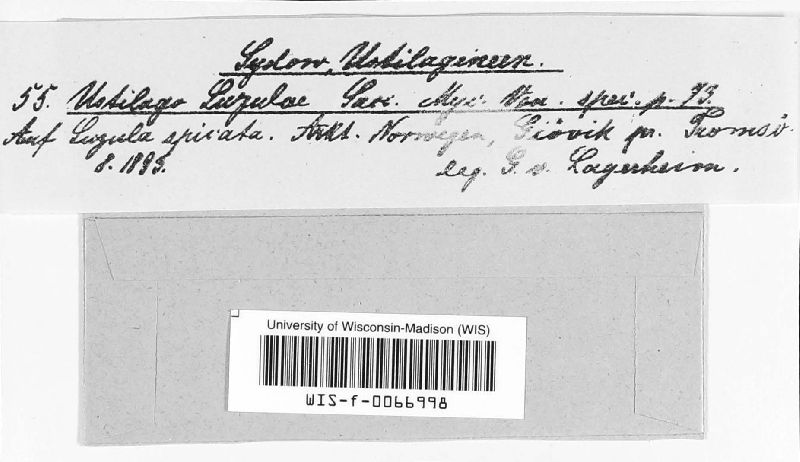 Sydow, Ustilagineen.
55. Ustilago Luzulae Sacc. Myc. Ven. spec. p. 73.
Auf Luzula spicata. Arkt. Norwegen, Giövik pr. Tromsö.
8. 1895. leg. G. v. Lagerheim.
University of Wisconsin-Madison (WIS)
WIS-f-0066998